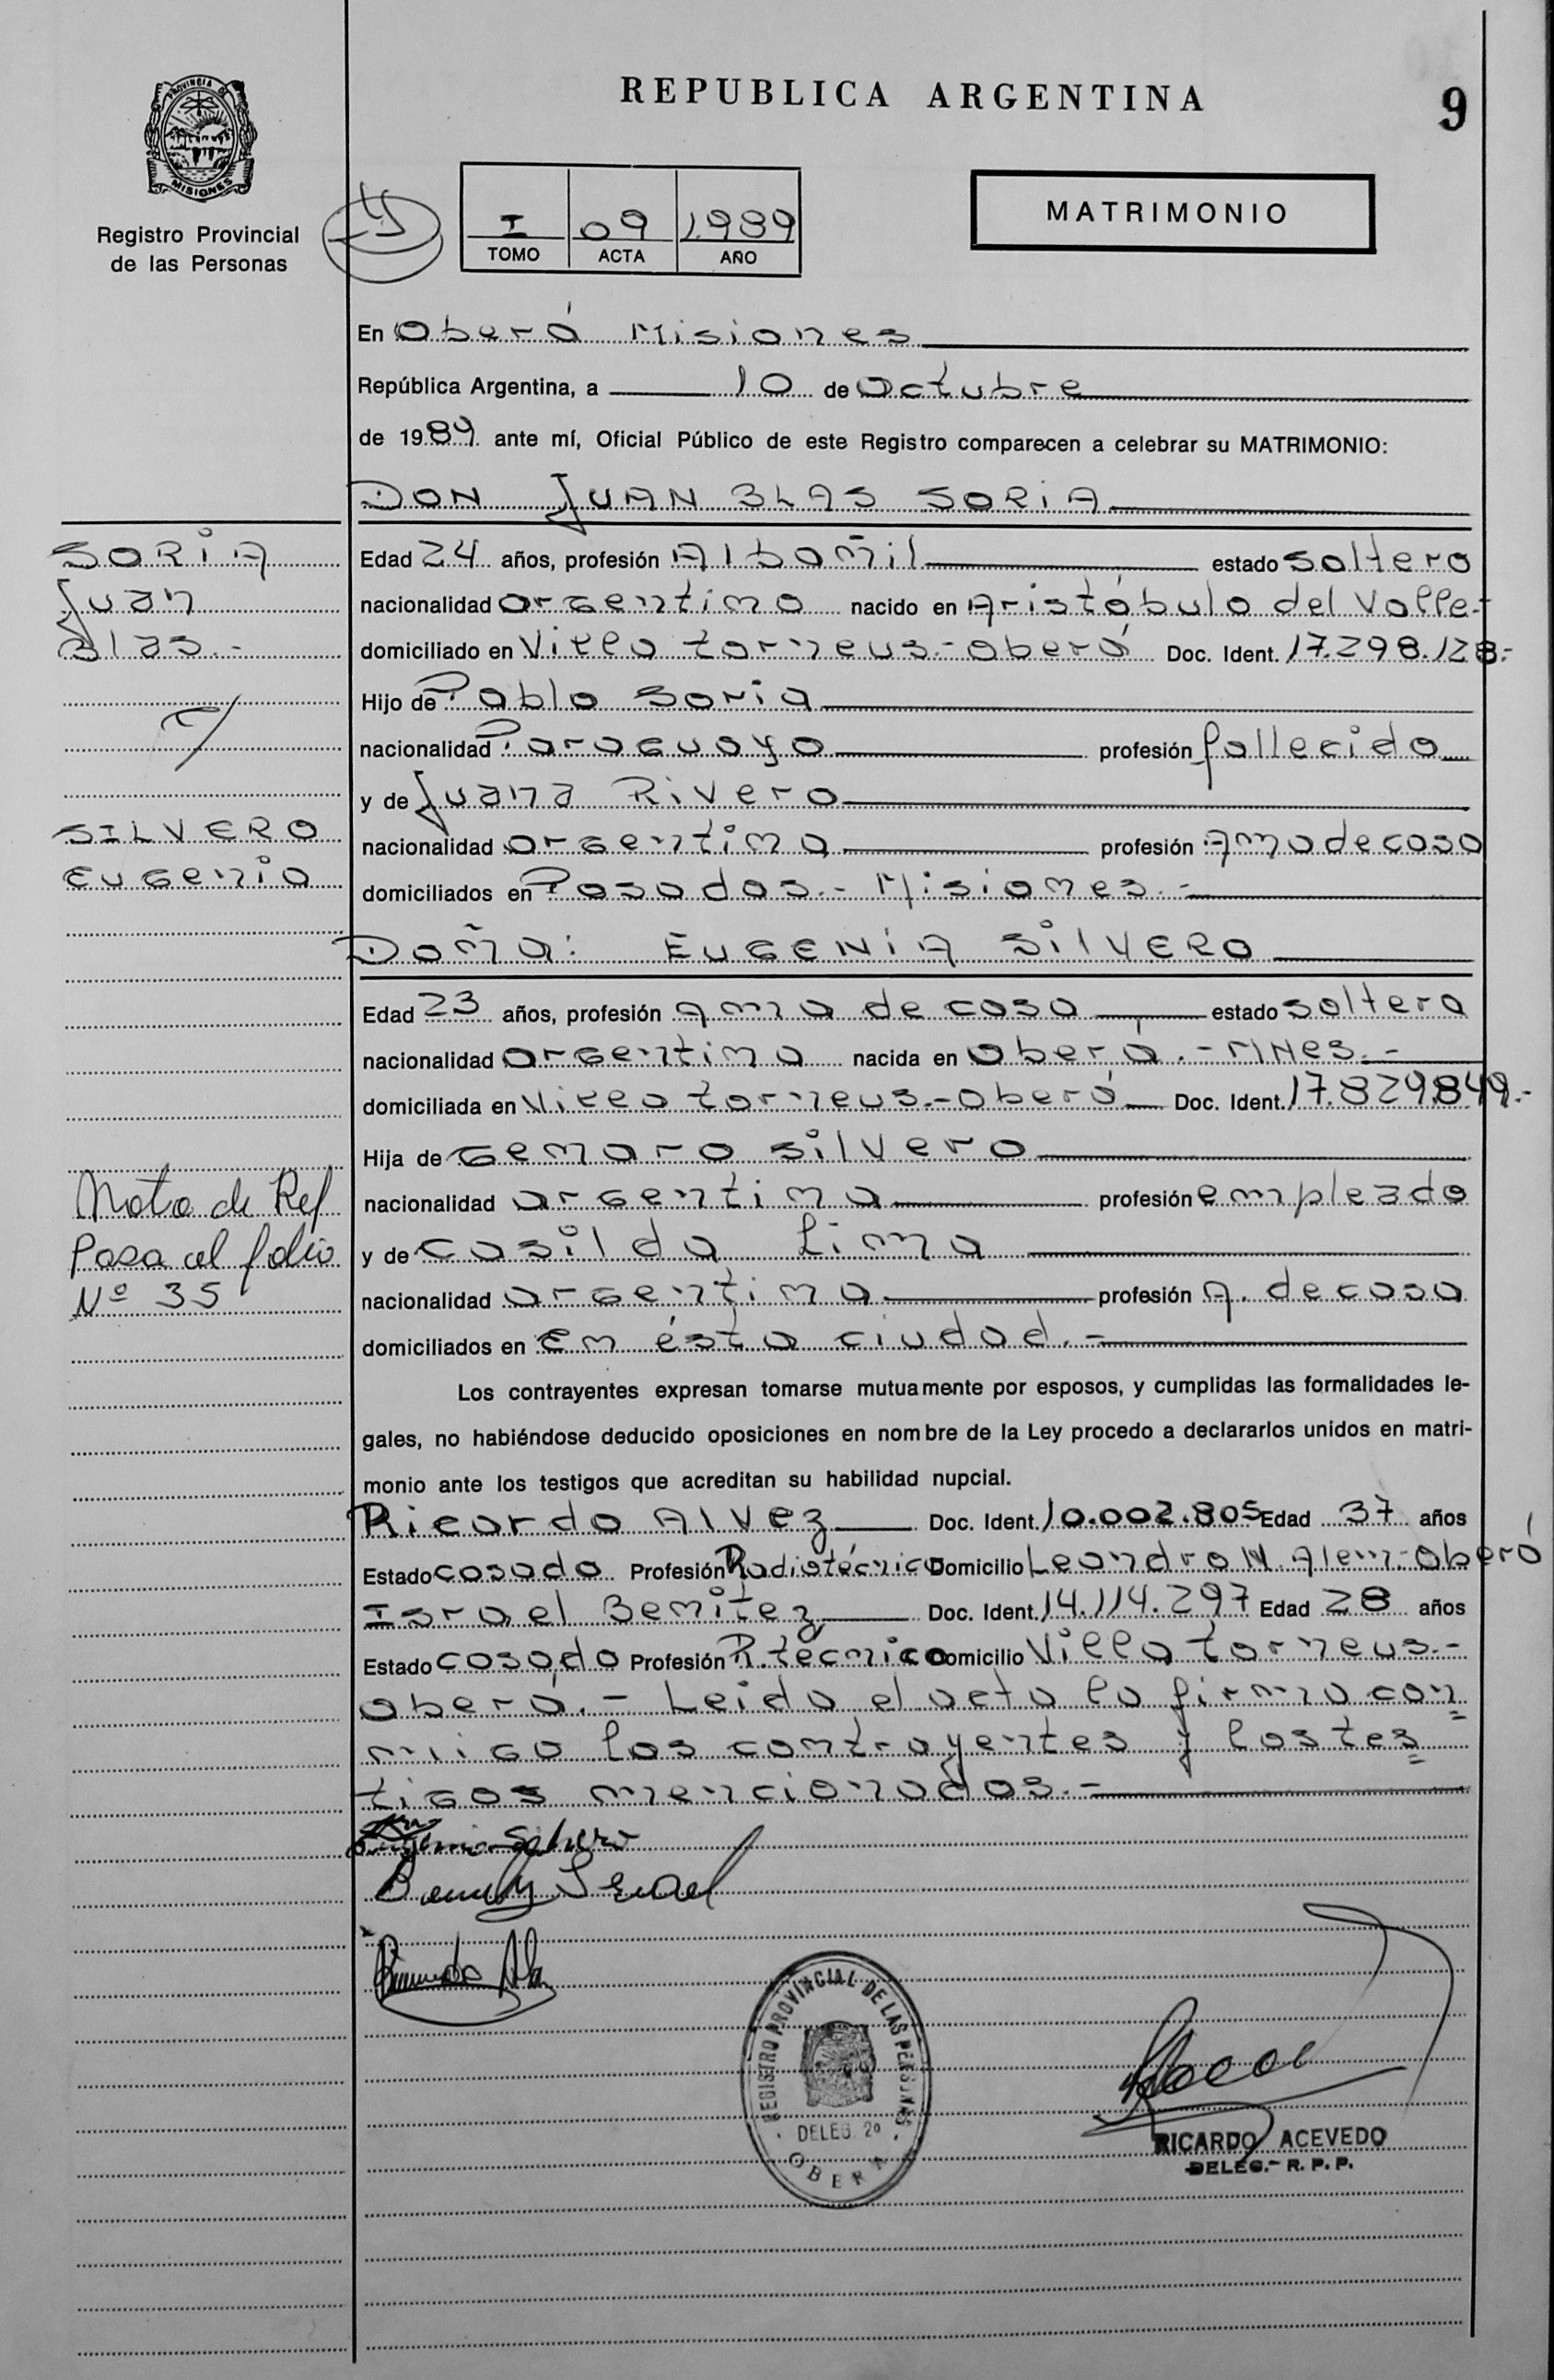 REPUBLICA ARGENTINA
9
PROVINCIA DE
MISIONES
Registro Provincial
de las Personas
I 09 1989
TOMO ACTA AÑO
MATRIMONIO
En Oberá Misiones
República Argentina, a 10 de Octubre
de 1989 ante mí, Oficial Público de este Registro comparecen a celebrar su MATRIMONIO:
DON JUAN BLAS SORIA
SORIA
Juan
Blas.-
y
SILVERO
Eugenia
Edad 24 años, profesión Albañil estado soltero
nacionalidad argentina nacido en Aristóbulo del Valle-
domiciliado en Villa torneus.-Oberá Doc. Ident. 17.298.128.-
Hijo de Pablo Soria
nacionalidad Paraguaya profesión fallecido
y de Juana Rivero
nacionalidad argentina profesión Ama de casa
domiciliados en Posadas.- Misiones.-
Doña: EUGENIA SILVERO
Edad 23 años, profesión ama de casa estado soltera
nacionalidad argentina nacida en Oberá.-MNes.-
domiciliada en Villa torneus.-Oberá Doc. Ident. 17.829.849.-
Hija de Genaro Silvero
nacionalidad argentina profesión empleado
y de Casilda Lima
nacionalidad argentina profesión A. de casa
domiciliados en en ésta ciudad.-
Nota de Ref
Pasa al folio
Nº 35
Los contrayentes expresan tomarse mutuamente por esposos, y cumplidas las formalidades le-
gales, no habiéndose deducido oposiciones en nombre de la Ley procedo a declararlos unidos en matri-
monio ante los testigos que acreditan su habilidad nupcial.
Ricardo Alvez Doc. Ident. 10.002.805 Edad 37 años
Estado casado Profesión Radiotécnico Domicilio Leandro N. Alem-Oberá
Israel Benitez Doc. Ident. 14.114.297 Edad 28 años
Estado casado Profesión R.técnico Domicilio Villa torneus.-
Oberá.- Leida el acta la firma con
migo los contrayentes y los tes
tigos mencionados.-
Eugenia Silvero
Israel
REGISTRO PROVINCIAL DE LAS PERSONAS
DELEG. 2º
OBERA
RICARDO ACEVEDO
DELEG.- R. P. P.